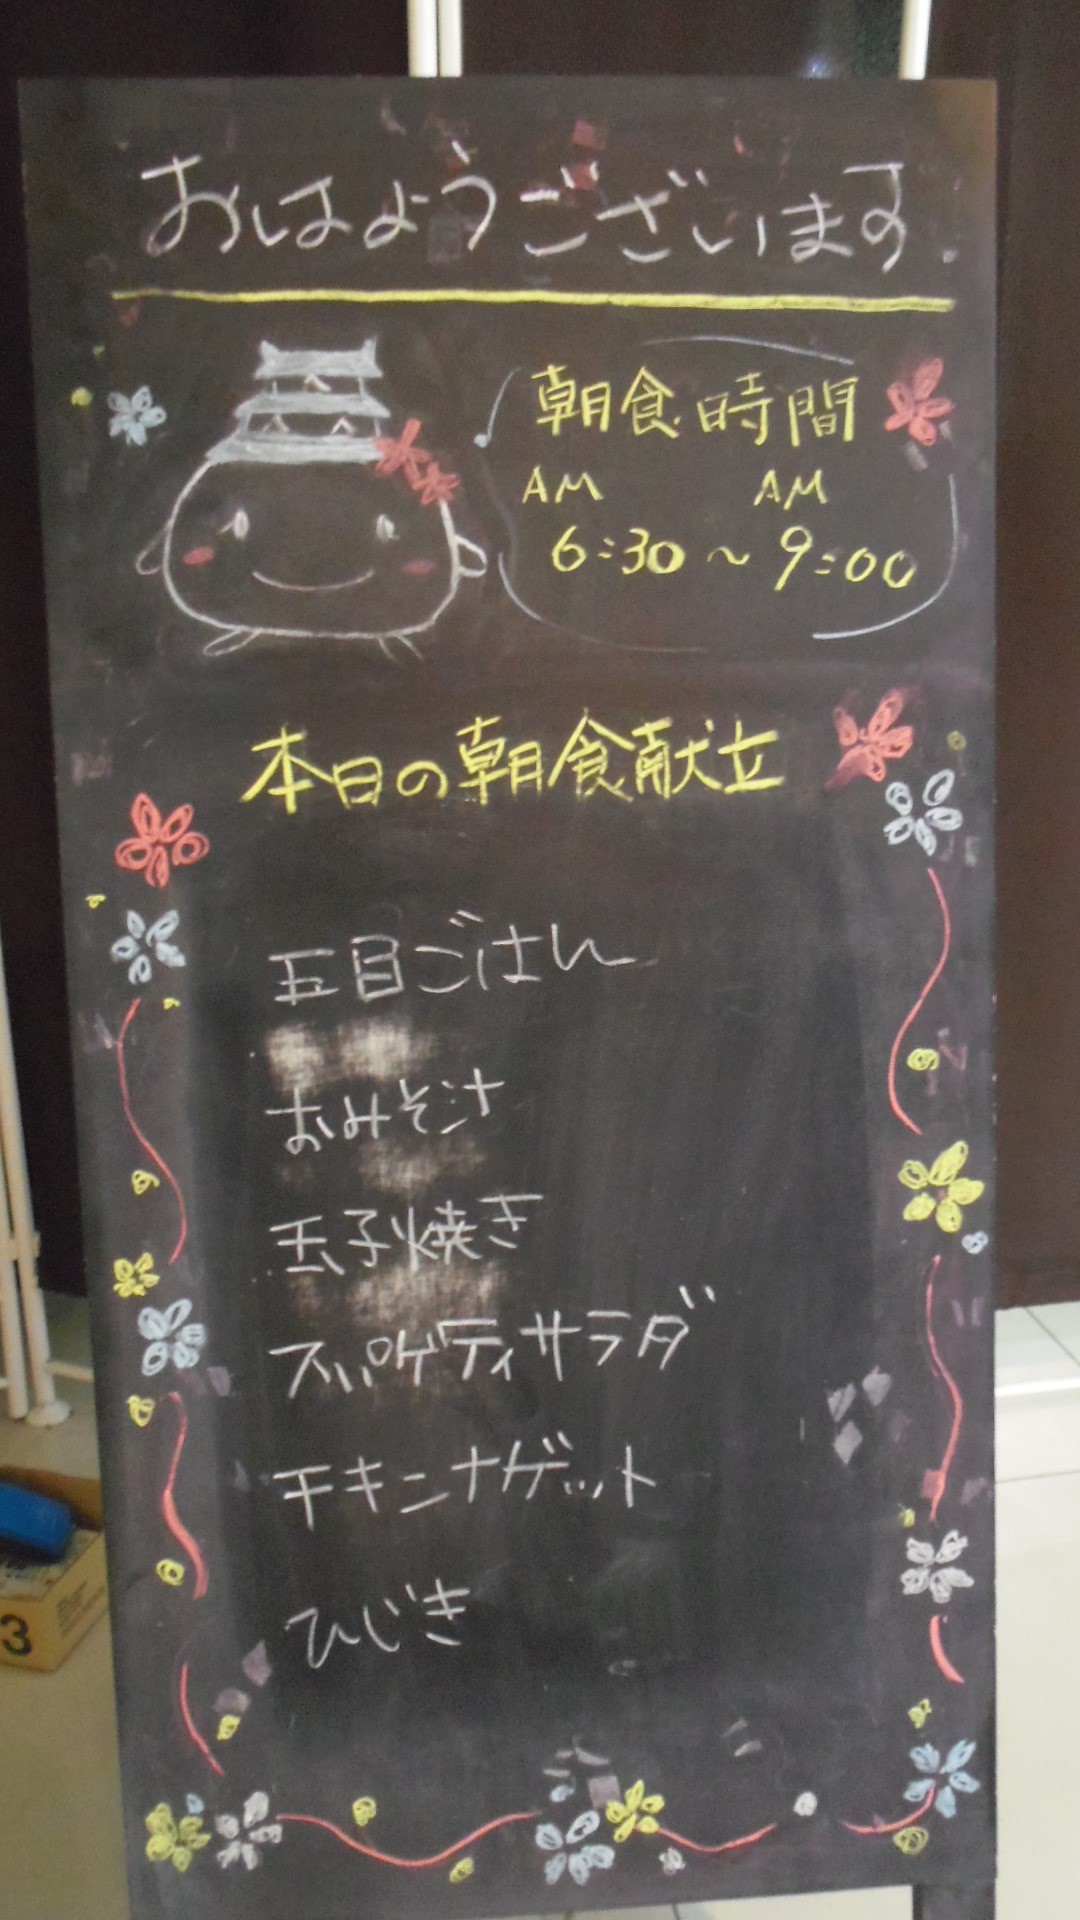 おはようございます.
朝食時間
AM AM
6:30～9:00
本日の朝食献立
五目ごはん
おみそ汁
玉子焼き
スパゲティサラダ
チキンナゲット
ひじき
3